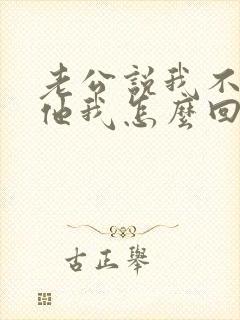 老公説我不
他我怎麼回
古正舉